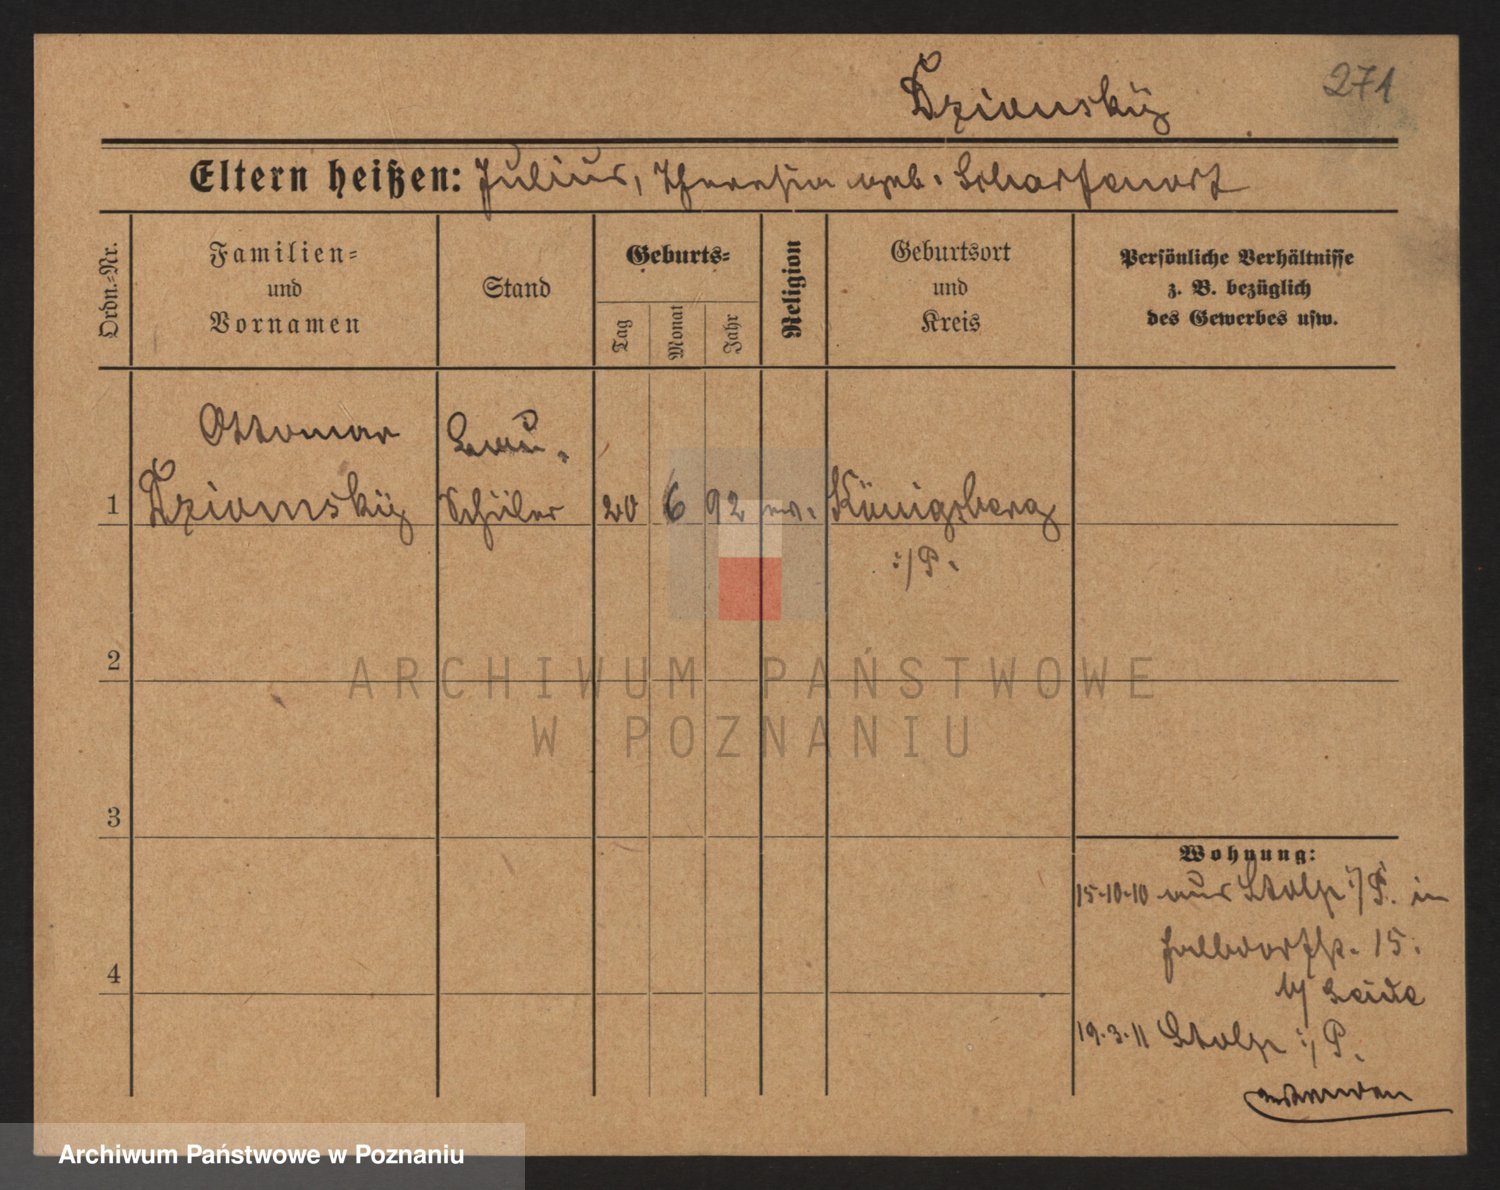 271
Dzionsky
Eltern heißen: Julius, Theresia geb. Scharfenort
Ordn.-Nr.
Familien-
und
Vornamen
Stand
Geburts-
Tag
Monat
Jahr
Religion
Geburtsort
und
Kreis
Persönliche Verhältnisse
z. B. bezüglich
des Gewerbes usw.
Ottomar
Bau-
1 Dzionsky Schüler 20 6 92 ev. Königsberg
i/P.
2
ARCHIWUM PAŃSTWOWE
W POZNANIU
3
Wohnung:
15.10.10 aus Stolp i/P. in
15.
4
bj
19.3.11 Stolp i/P.
Archiwum Państwowe w Poznaniu